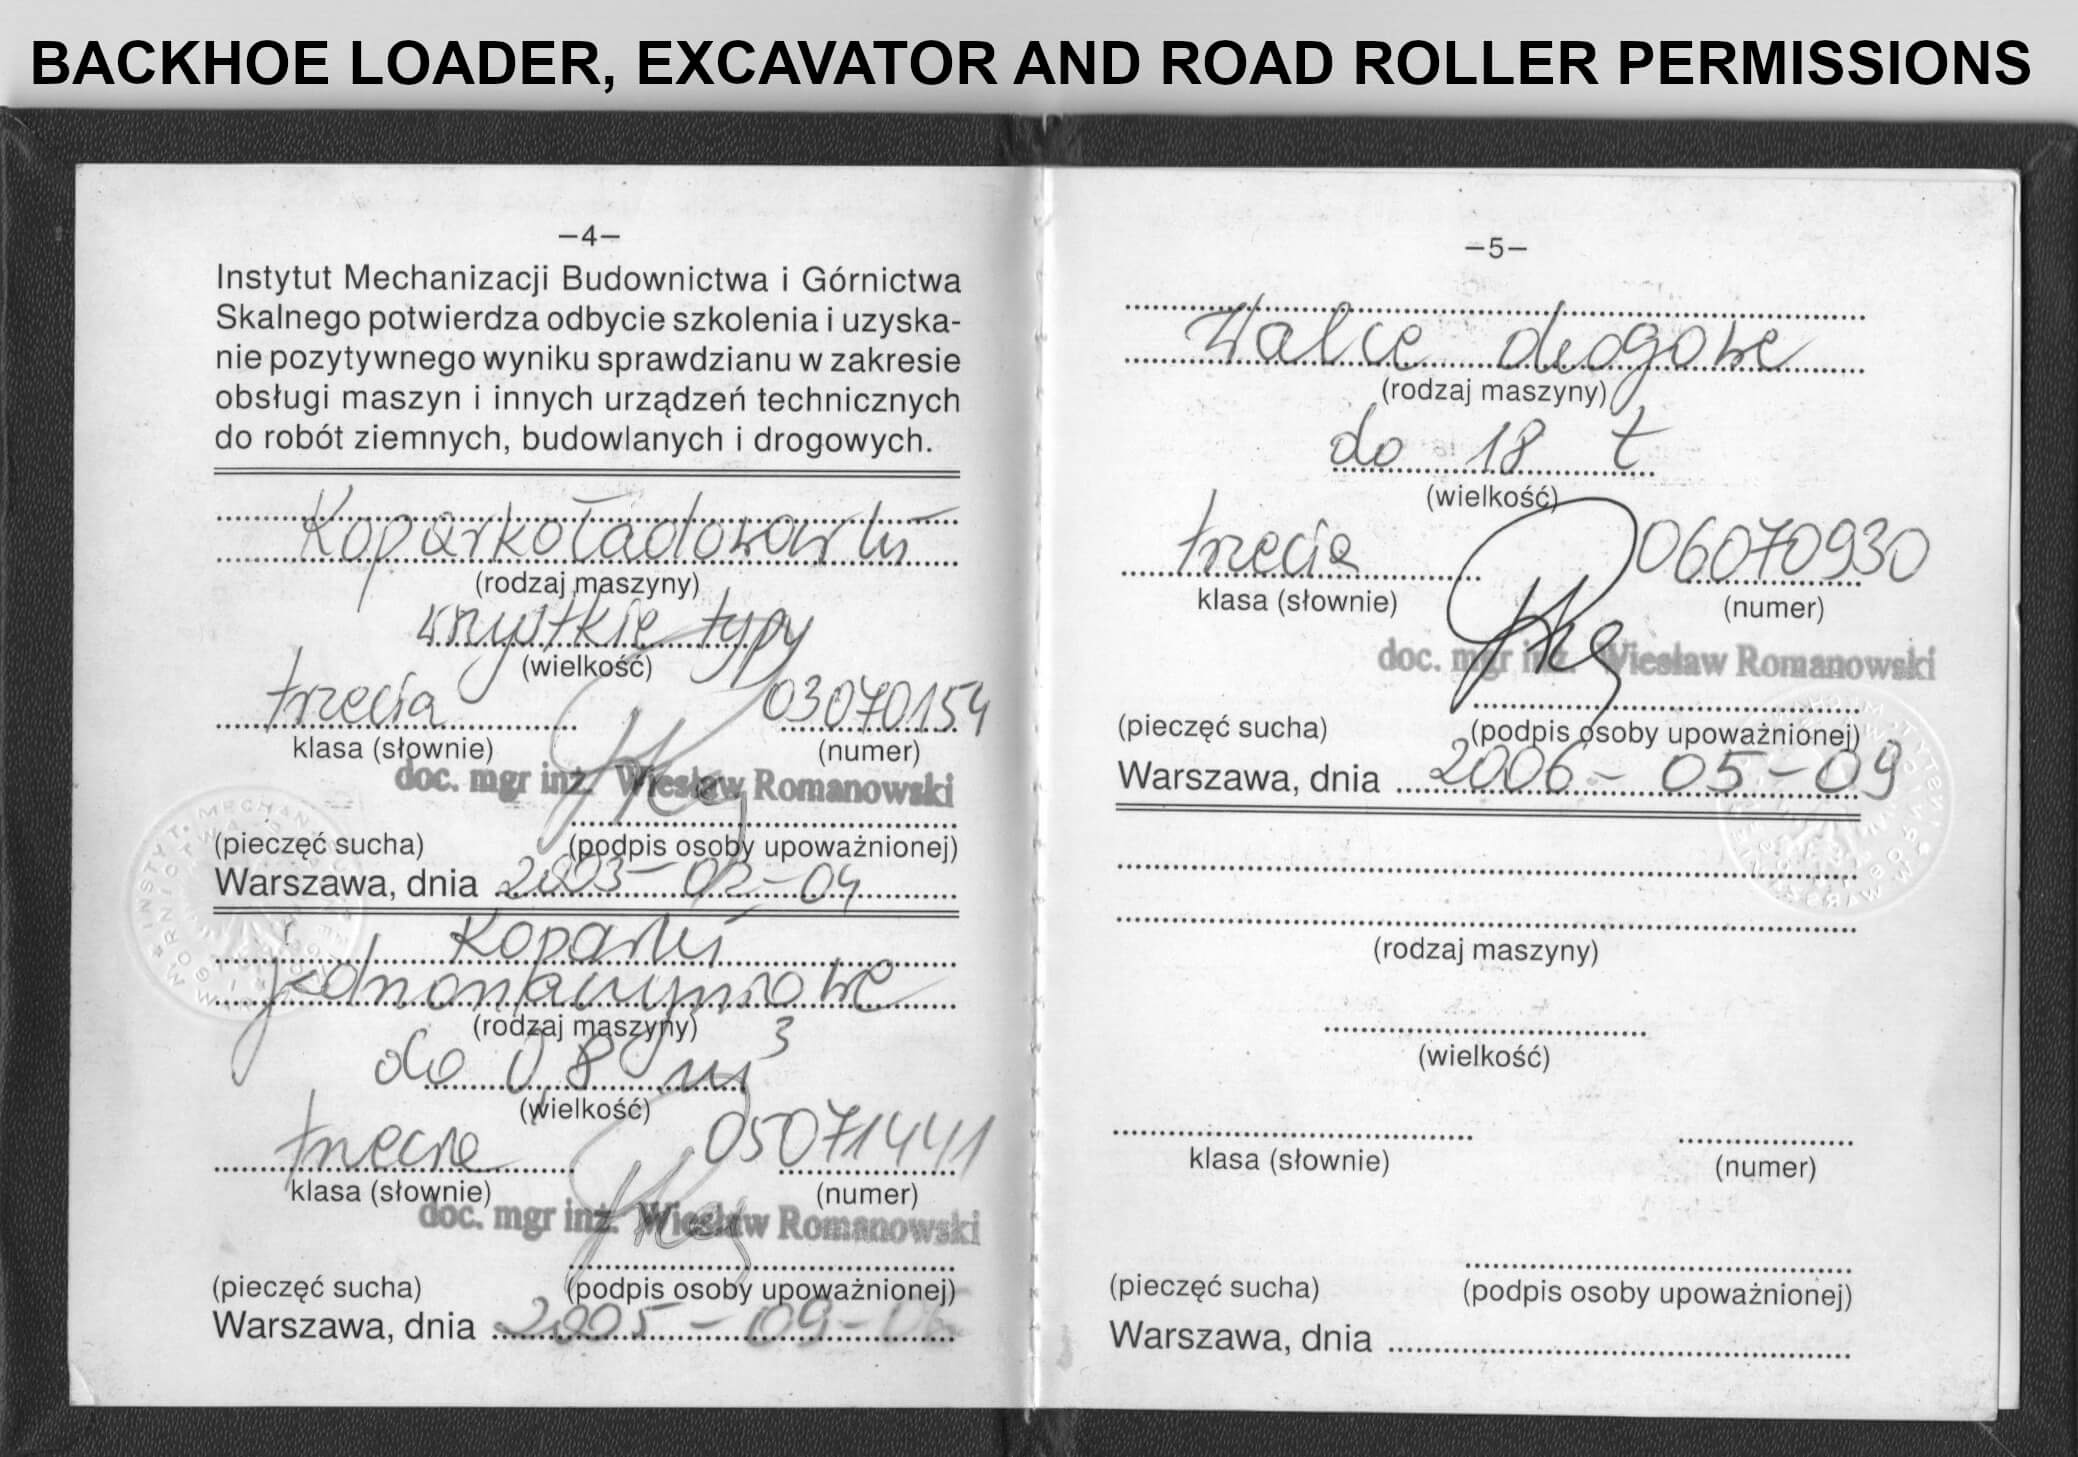 BACKHOE LOADER, EXCAVATOR AND ROAD ROLLER PERMISSIONS
–4–
Instytut Mechanizacji Budownictwa i Górnictwa
Skalnego potwierdza odbycie szkolenia i uzyska-
nie pozytywnego wyniku sprawdzianu w zakresie
obsługi maszyn i innych urządzeń technicznych
do robót ziemnych, budowlanych i drogowych.
Koparkoładowarki
(rodzaj maszyny)
wszystkie typy
(wielkość)
trzecia 03070154
klasa (słownie) (numer)
doc. mgr inż. Wiesław Romanowski
(pieczęć sucha) (podpis osoby upoważnionej)
Warszawa, dnia 2003-02-04
Koparki
jednonaczyniowe
(rodzaj maszyny)
do 0,8 m³
(wielkość)
trzecia 05071441
klasa (słownie) (numer)
doc. mgr inż. Wiesław Romanowski
(pieczęć sucha) (podpis osoby upoważnionej)
Warszawa, dnia 2005-09-06
–5–
Walce drogowe
(rodzaj maszyny)
do 18 t
(wielkość)
trzecia 06070930
klasa (słownie) (numer)
doc. mgr inż. Wiesław Romanowski
(pieczęć sucha) (podpis osoby upoważnionej)
Warszawa, dnia 2006-05-09
(rodzaj maszyny)
(wielkość)
klasa (słownie) (numer)
(pieczęć sucha) (podpis osoby upoważnionej)
Warszawa, dnia